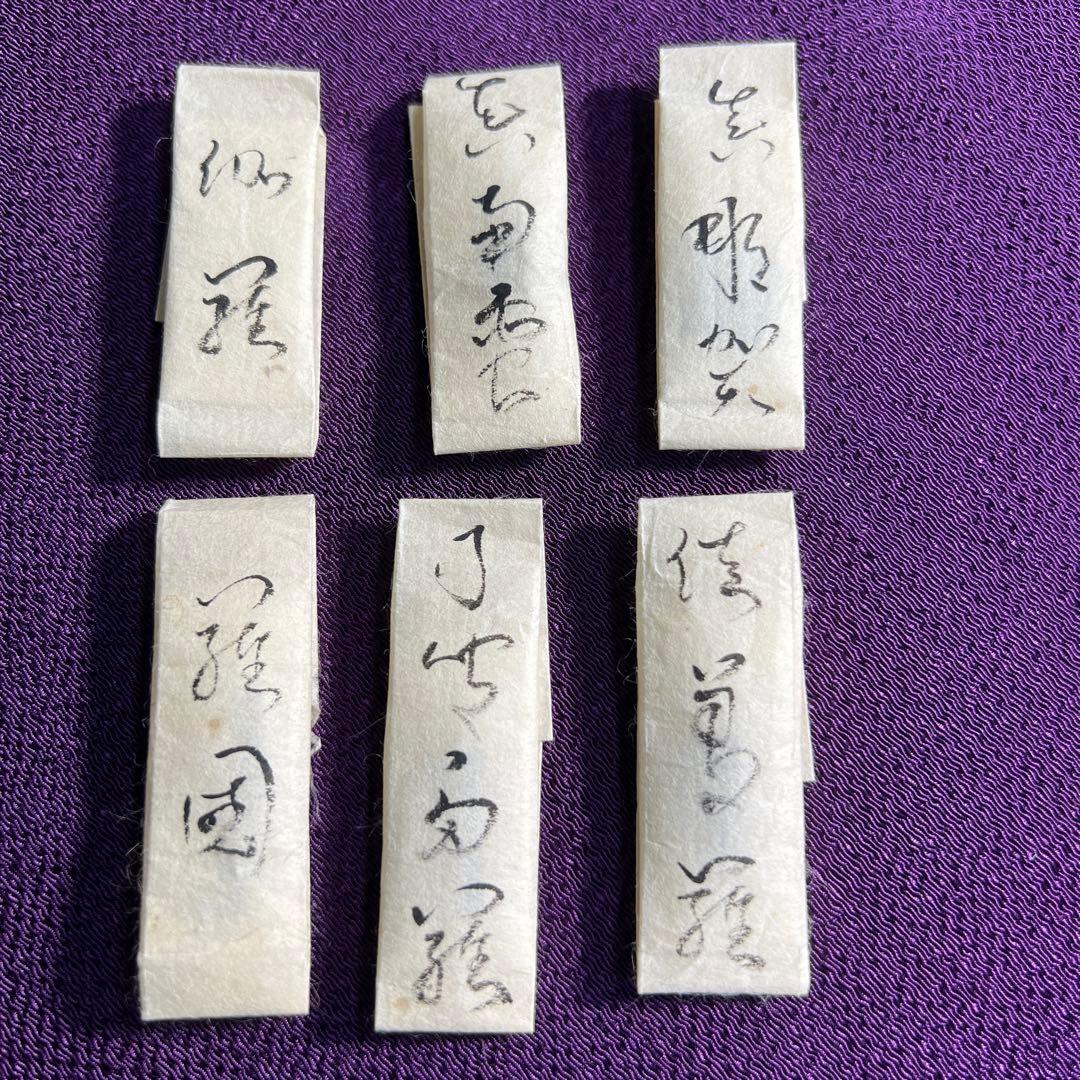 伽羅
真南蛮
真那賀
羅國
寸聞多羅
佐曽羅